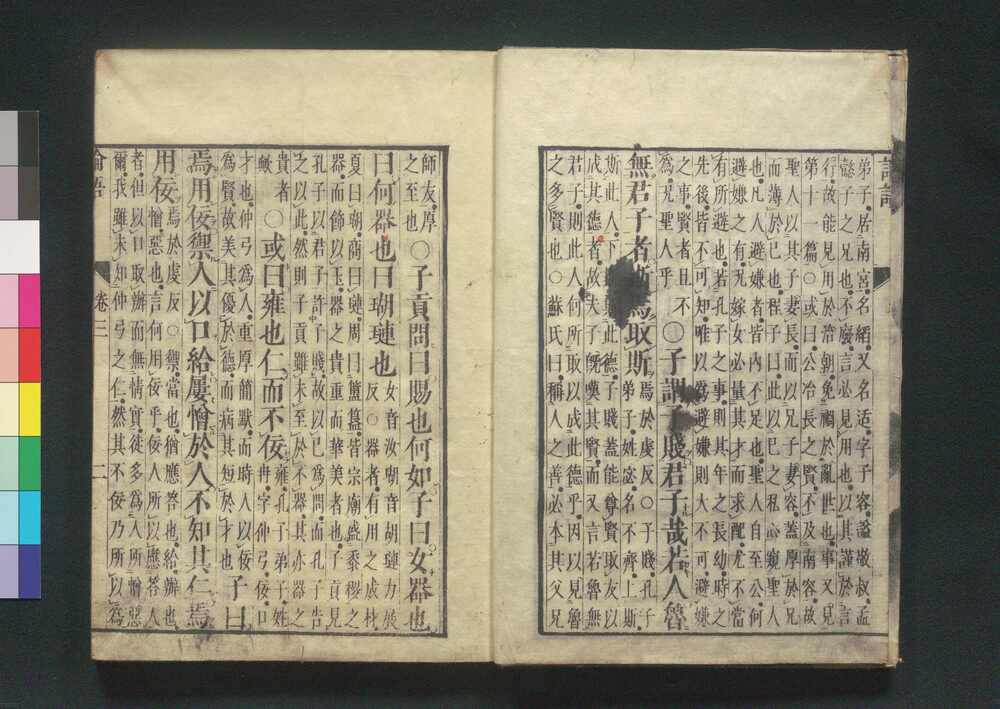 弟子居南宮名縚又名适字子容諡敬叔孟
懿子之兄也不廢言必見用也以其謹於言
行故能見用於治朝免禍於亂世也事又見
第十一篇○或曰公冶長之賢不及南容故
聖人以其子妻長而以兄子妻容蓋厚於兄
而薄於己也程子曰此以己之私心窺聖人
也凡人避嫌者皆內不足也聖人自至公何
避嫌之有況嫁女必量其才而求配尤不當
有所避也若孔子之事則其年之長幼時之
先後皆不可知唯以爲避嫌則大不可避嫌
之事賢者且不
爲況聖人乎
○子謂子賤君子哉若人魯
無君子者斯焉取斯
焉於虔反○子賤孔子
弟子姓宓名不齊上斯
斯此人下斯斯此德子賤蓋能尊賢取友以
成其德者故夫子既嘆其賢而又言若魯無
君子則此人何所取以成此德乎因以見魯
之多賢也○蘇氏曰稱人之善必本其父兄
師友厚
之至也
○子貢問曰賜也何如子曰女器也
曰何器也曰瑚璉也
女音汝瑚音胡璉力展
反○器者有用之成材
夏曰瑚商曰璉周曰簠簋皆宗廟盛黍稷之
器而飾以玉器之貴重而華美者也子貢見
孔子以君子許子賤故以己爲問而孔子告
之以此然則子貢雖未至於不器其亦器之
貴者
歟
○或曰雍也仁而不佞
雍孔子弟子姓
冉字仲弓佞口
才也仲弓爲人重厚簡默而時人以佞
爲賢故美其優於德而病其短於才也
子曰
焉用佞禦人以口給屢憎於人不知其仁焉
用佞
焉於虔反○禦當也猶應答也給辦也
憎惡也言何用佞乎佞人所以應答人
者但以口取辦而無情實徒多爲人所憎惡
爾我雖未知仲弓之仁然其不佞乃所以爲
論語 卷三 二